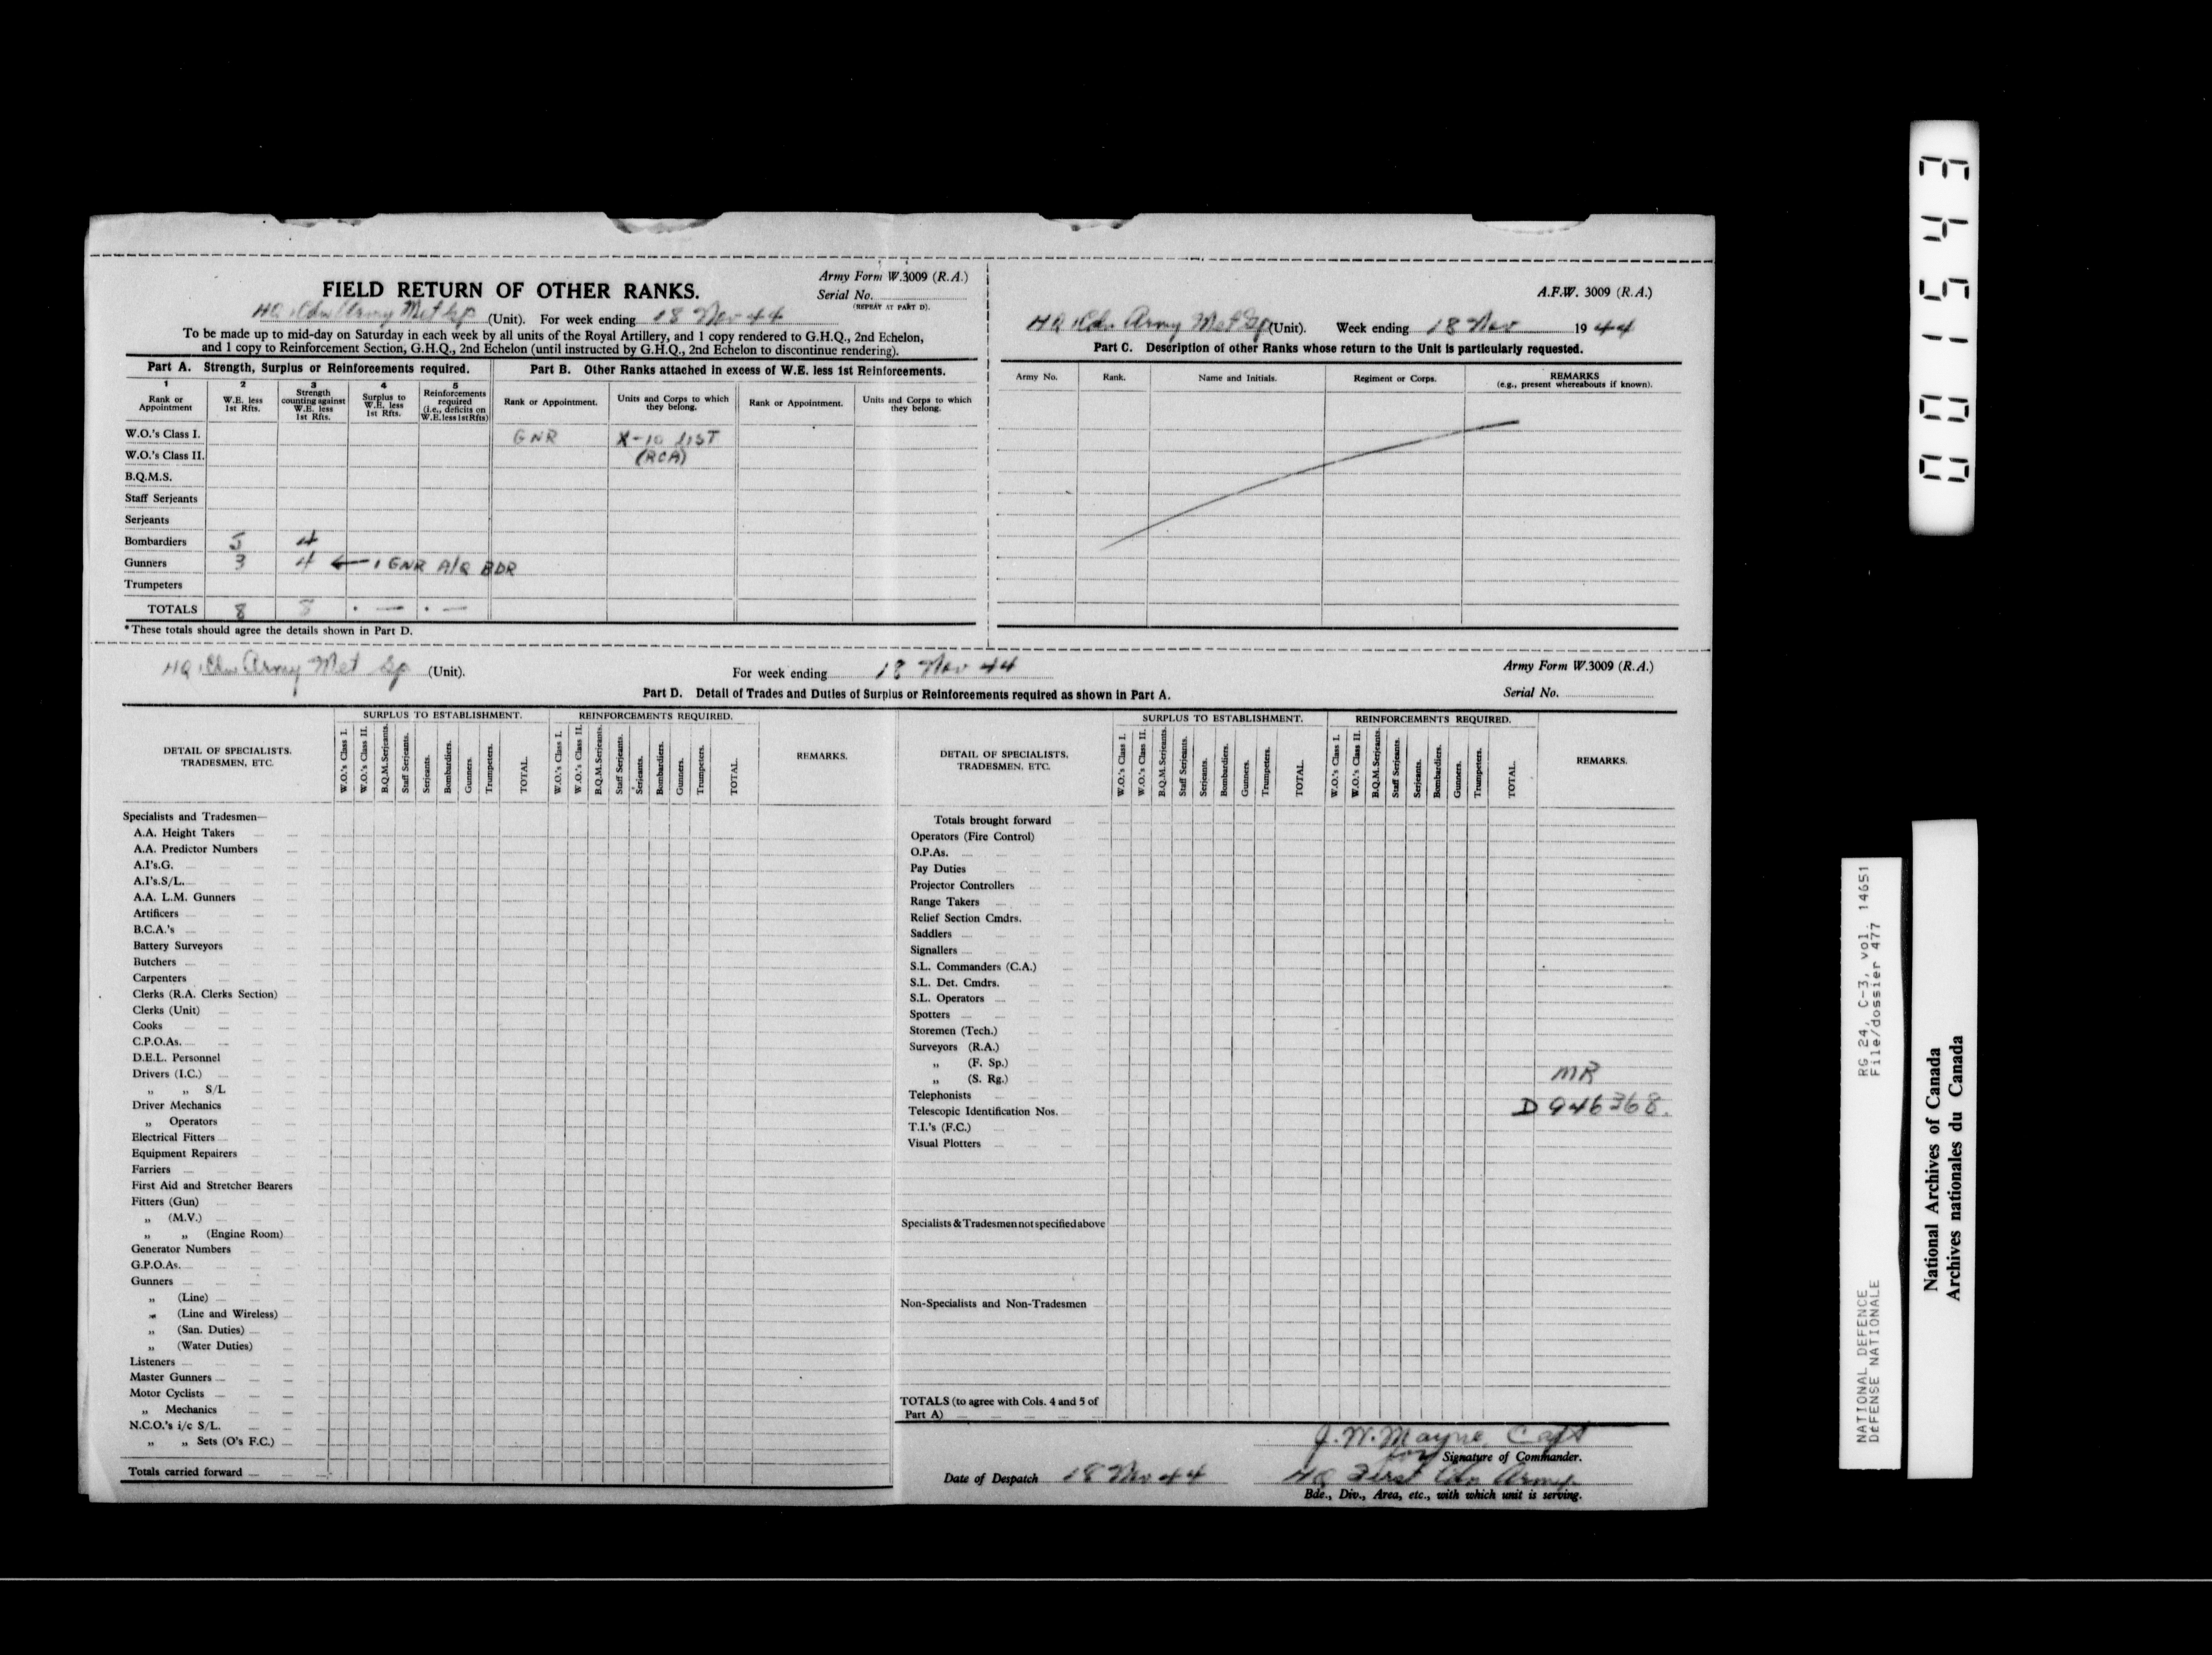 Army Form W.3009 (R.A.)
FIELD RETURN OF OTHER RANKS.
Serial No.
(REPEAT AT PART D).
HQ 1 Cdn Army Met Gp (Unit). For week ending 18 Nov 44
To be made up to mid-day on Saturday in each week by all units of the Royal Artillery, and 1 copy rendered to G.H.Q., 2nd Echelon,
and 1 copy to Reinforcement Section, G.H.Q., 2nd Echelon (until instructed by G.H.Q., 2nd Echelon to discontinue rendering).
Part A. Strength, Surplus or Reinforcements required.
1 2 3 4 5
Rank or Appointment
W.E. less 1st Rfts.
Strength counting against W.E. less 1st Rfts.
Surplus to W.E. less 1st Rfts.
Reinforcements required (i.e., deficits on W.E. less 1st Rfts)
W.O.'s Class I.
W.O.'s Class II.
B.Q.M.S.
Staff Serjeants
Serjeants
Bombardiers 5 4
Gunners 3 4 ← 1 GNR A/Q BDR
Trumpeters
TOTALS 8 8 · — · —
*These totals should agree the details shown in Part D.
Part B. Other Ranks attached in excess of W.E. less 1st Reinforcements.
Rank or Appointment. Units and Corps to which they belong. Rank or Appointment. Units and Corps to which they belong.
GNR X-10 LIST
(RCA)
A.F.W. 3009 (R.A.)
HQ 1 Cdn Army Met Gp (Unit). Week ending 18 Nov 1944
Part C. Description of other Ranks whose return to the Unit is particularly requested.
Army No. Rank. Name and Initials. Regiment or Corps. REMARKS
(e.g., present whereabouts if known).
HQ 1 Cdn Army Met Gp (Unit). For week ending 18 Nov 44
Army Form W.3009 (R.A.)
Serial No.
Part D. Detail of Trades and Duties of Surplus or Reinforcements required as shown in Part A.
SURPLUS TO ESTABLISHMENT. REINFORCEMENTS REQUIRED.
DETAIL OF SPECIALISTS.
TRADESMEN, ETC.
W.O.'s Class I. W.O.'s Class II. B.Q.M.Serjeants. Staff Serjeants. Serjeants. Bombardiers. Gunners. Trumpeters. TOTAL.
W.O.'s Class I. W.O.'s Class II. B.Q.M.Serjeants. Staff Serjeants. Serjeants. Bombardiers. Gunners. Trumpeters. TOTAL.
REMARKS.
Specialists and Tradesmen—
A.A. Height Takers
A.A. Predictor Numbers
A.I's.G.
A.I's.S/L.
A.A. L.M. Gunners
Artificers
B.C.A.'s
Battery Surveyors
Butchers
Carpenters
Clerks (R.A. Clerks Section)
Clerks (Unit)
Cooks
C.P.O.As.
D.E.L. Personnel
Drivers (I.C.)
„ „ S/L
Driver Mechanics
„ Operators
Electrical Fitters
Equipment Repairers
Farriers
First Aid and Stretcher Bearers
Fitters (Gun)
„ (M.V.)
„ „ (Engine Room)
Generator Numbers
G.P.O.As.
Gunners
„ (Line)
„ (Line and Wireless)
„ (San. Duties)
„ (Water Duties)
Listeners
Master Gunners
Motor Cyclists
„ Mechanics
N.C.O.'s i/c S/L.
„ „ Sets (O's F.C.)
Totals carried forward
SURPLUS TO ESTABLISHMENT. REINFORCEMENTS REQUIRED.
DETAIL OF SPECIALISTS.
TRADESMEN, ETC.
W.O.'s Class I. W.O.'s Class II. B.Q.M.Serjeants. Staff Serjeants. Serjeants. Bombardiers. Gunners. Trumpeters. TOTAL.
W.O.'s Class I. W.O.'s Class II. B.Q.M.Serjeants. Staff Serjeants. Serjeants. Bombardiers. Gunners. Trumpeters. TOTAL.
REMARKS.
Totals brought forward
Operators (Fire Control)
O.P.As.
Pay Duties
Projector Controllers
Range Takers
Relief Section Cmdrs.
Saddlers
Signallers
S.L. Commanders (C.A.)
S.L. Det. Cmdrs.
S.L. Operators
Spotters
Storemen (Tech.)
Surveyors (R.A.)
„ (F. Sp.)
„ (S. Rg.) MR
Telephonists
Telescopic Identification Nos. D 946368.
T.I.'s (F.C.)
Visual Plotters
Specialists & Tradesmen not specified above
Non-Specialists and Non-Tradesmen
TOTALS (to agree with Cols. 4 and 5 of
Part A)
J. W. Mayne Capt
for Signature of Commander.
Date of Despatch 18 Nov 44 HQ First Cdn Army.
Bde., Div., Area, etc., with which unit is serving.
001543
RG 24, C-3, vol. 14651
File/dossier 477
NATIONAL DEFENCE
DEFENSE NATIONALE
National Archives of Canada
Archives nationales du Canada